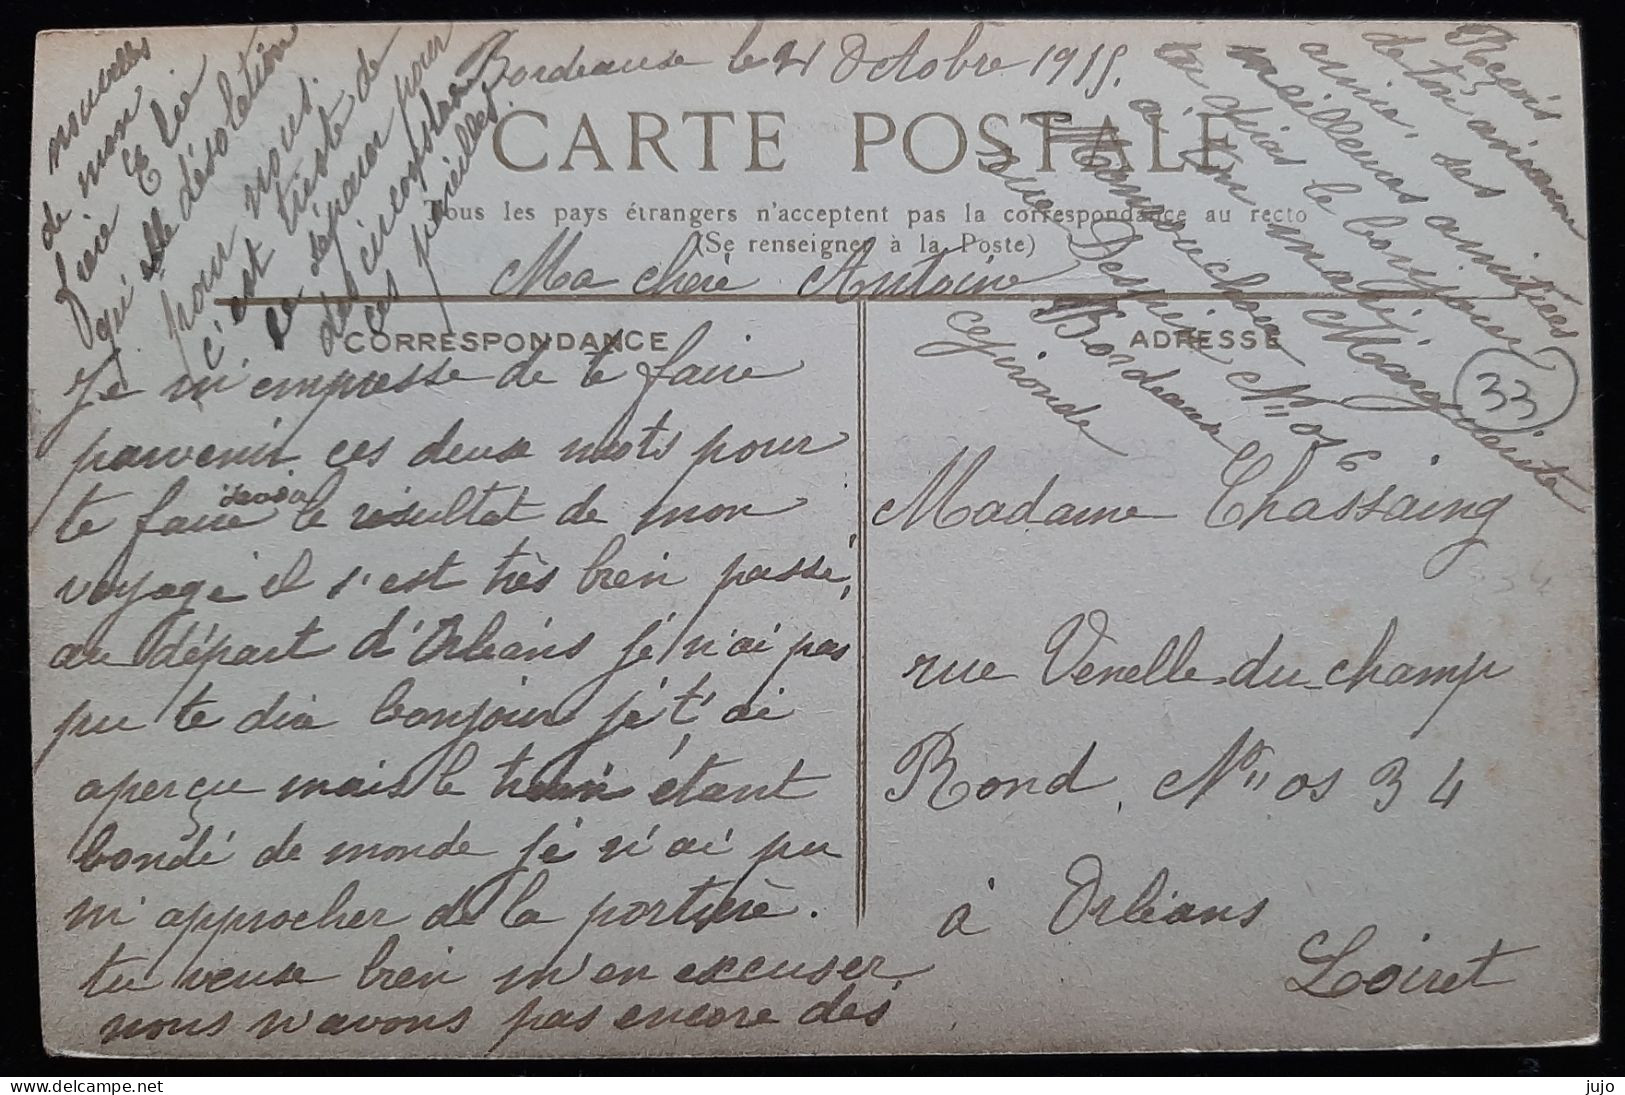 Bordeause le 21 Octobre 1915.
CARTE POSTALE
Tous les pays étrangers n'acceptent pas la correspondance au recto
(Se renseigner à la Poste)
Ma chère Antoine
CORRESPONDANCE
Je m'empresse de te faire
parvenir ces deuse mots pour
te faire savoir le résultat de mon
voyage il s'est très bien passé,
au départ d'Orléans je n'ai pas
pu te dire bonjour je t'ai
aperçu mais le train étant
bondé de monde je n'ai pu
m'approcher de la portière.
tu veuse bien m'en excuser
nous n'avons pas encore des
nouvelles
de mon
frère Elie
qu'elle désolation
pour nous.
c'est triste de
ce séparer pour
des
ces
Reçois
de ton
amie, ses
meilleures amitiés
tu diras le bonjour
à ton mari
Marguerite
rue
N" os 6
Bordeause
Gironde
33
ADRESSE
Madame Chassaing
rue Venelle-du-champ
Rond, N" os 34
à Orléans
Loiret
jujo